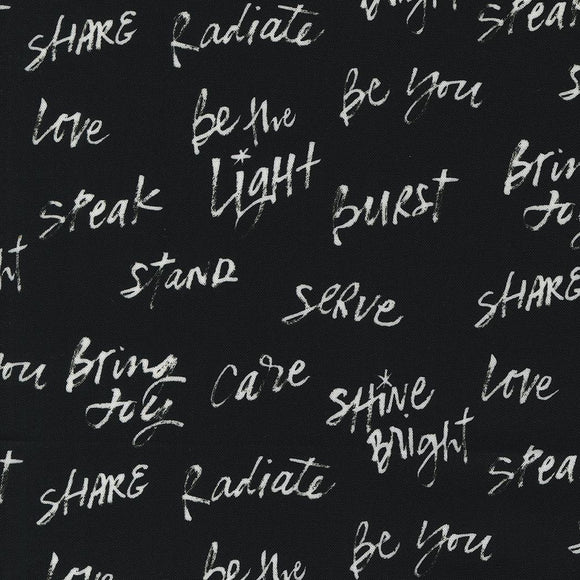 Bright
SPeaK
SHARE Radiate
Be You
Love Be the
LigHt
Bring
Joy
SPeaK BURSt
StanD
SeRVe SHARE
You Bring
Joy
Care
Love
SHiNe
BRigHt
SPeaK
SHARE Radiate
Be You
Love Be the